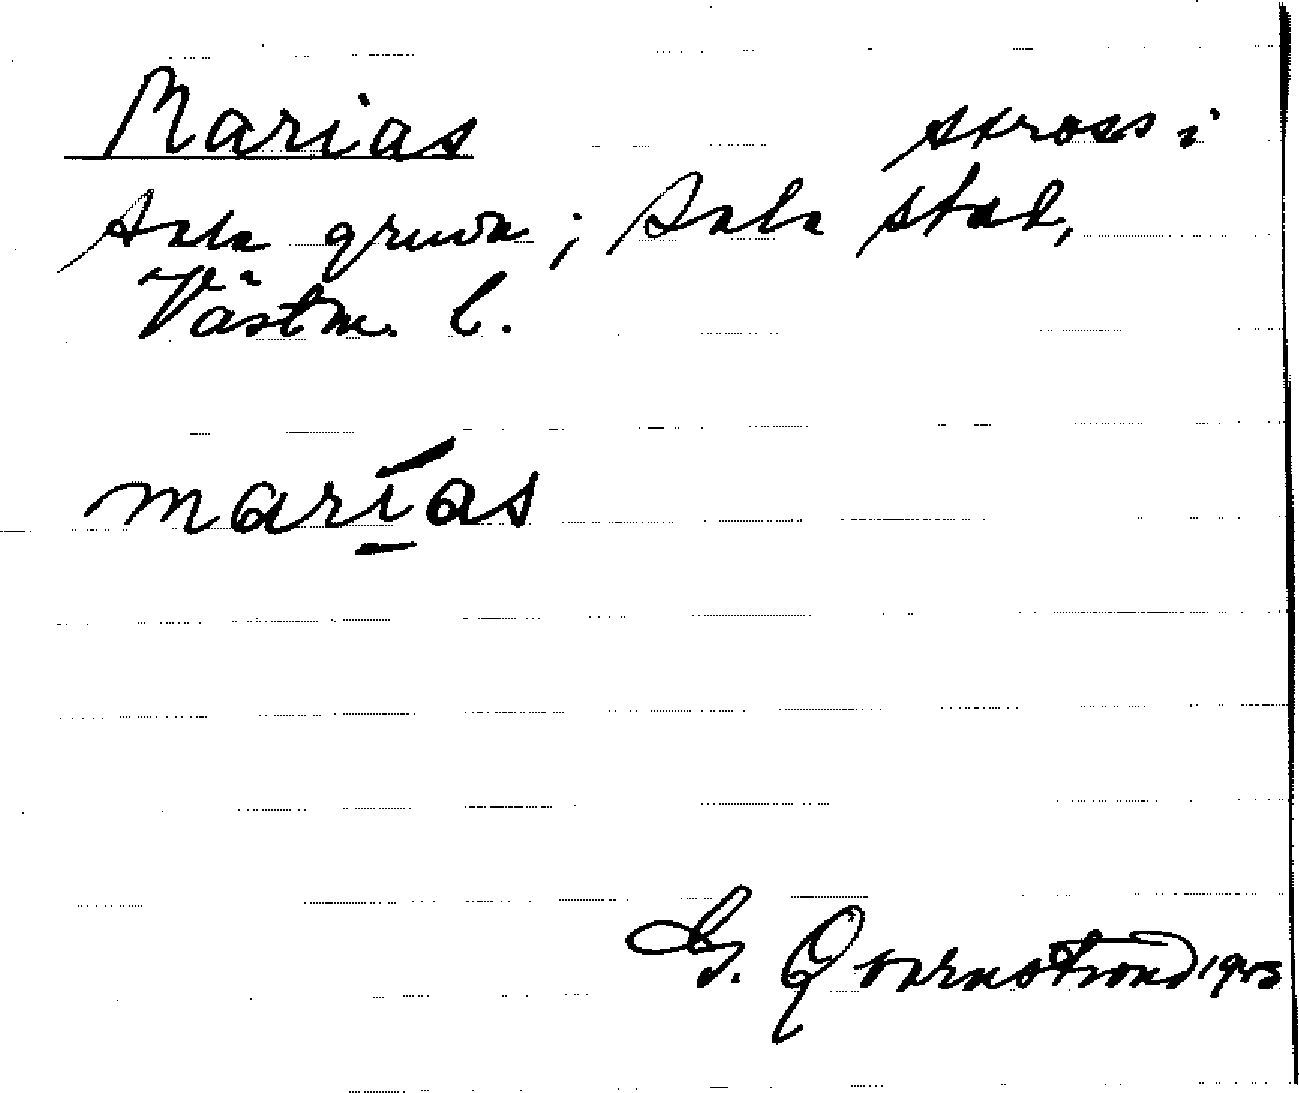 Marias stross i
Sala gruva; Sala stad,
Västm. l.
marías
G. Qvarnström 1953